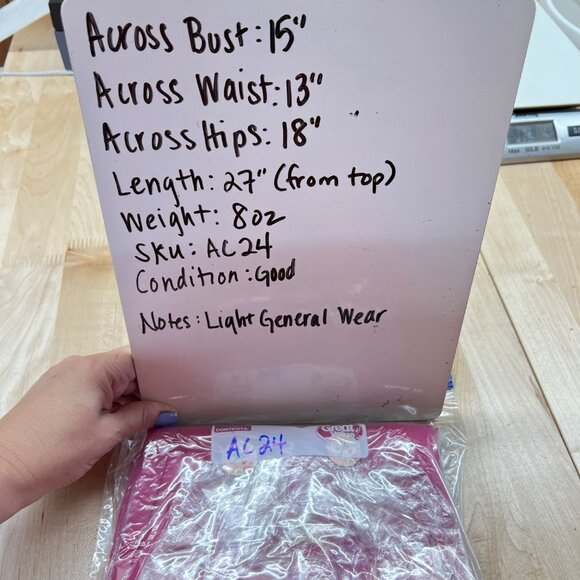 Across Bust: 15"
Across Waist: 13"
Across Hips: 18"
Length: 27" (from top)
Weight: 8oz
Sku: AC24
Condition: Good
Notes: Light General Wear
CONTENTS:
Great
AC24
Max 50LB